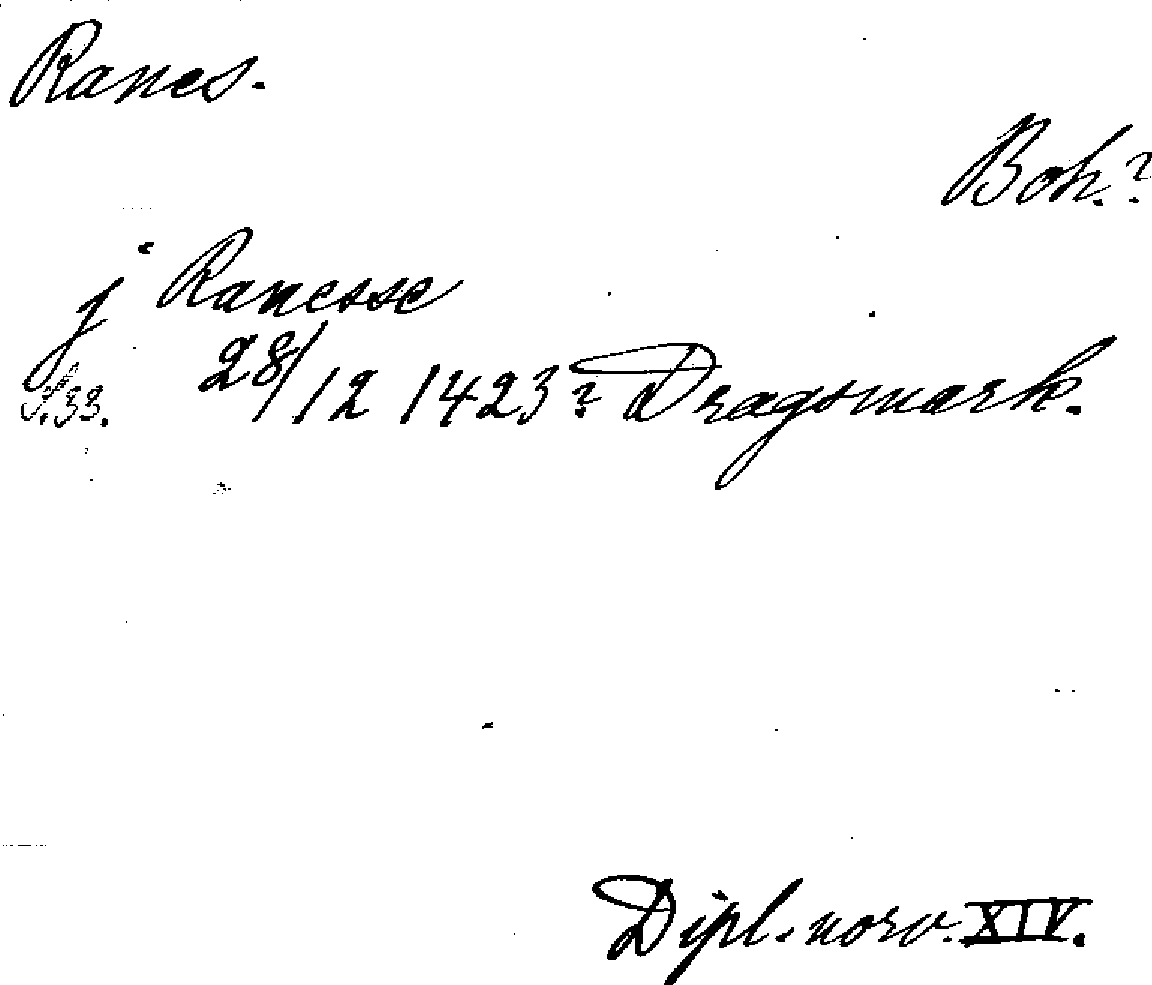 Ranes.
Boh.?
j Ranesse
S. 33. 28/12 1423? Dragsmark.
Dipl. norv. XIV.